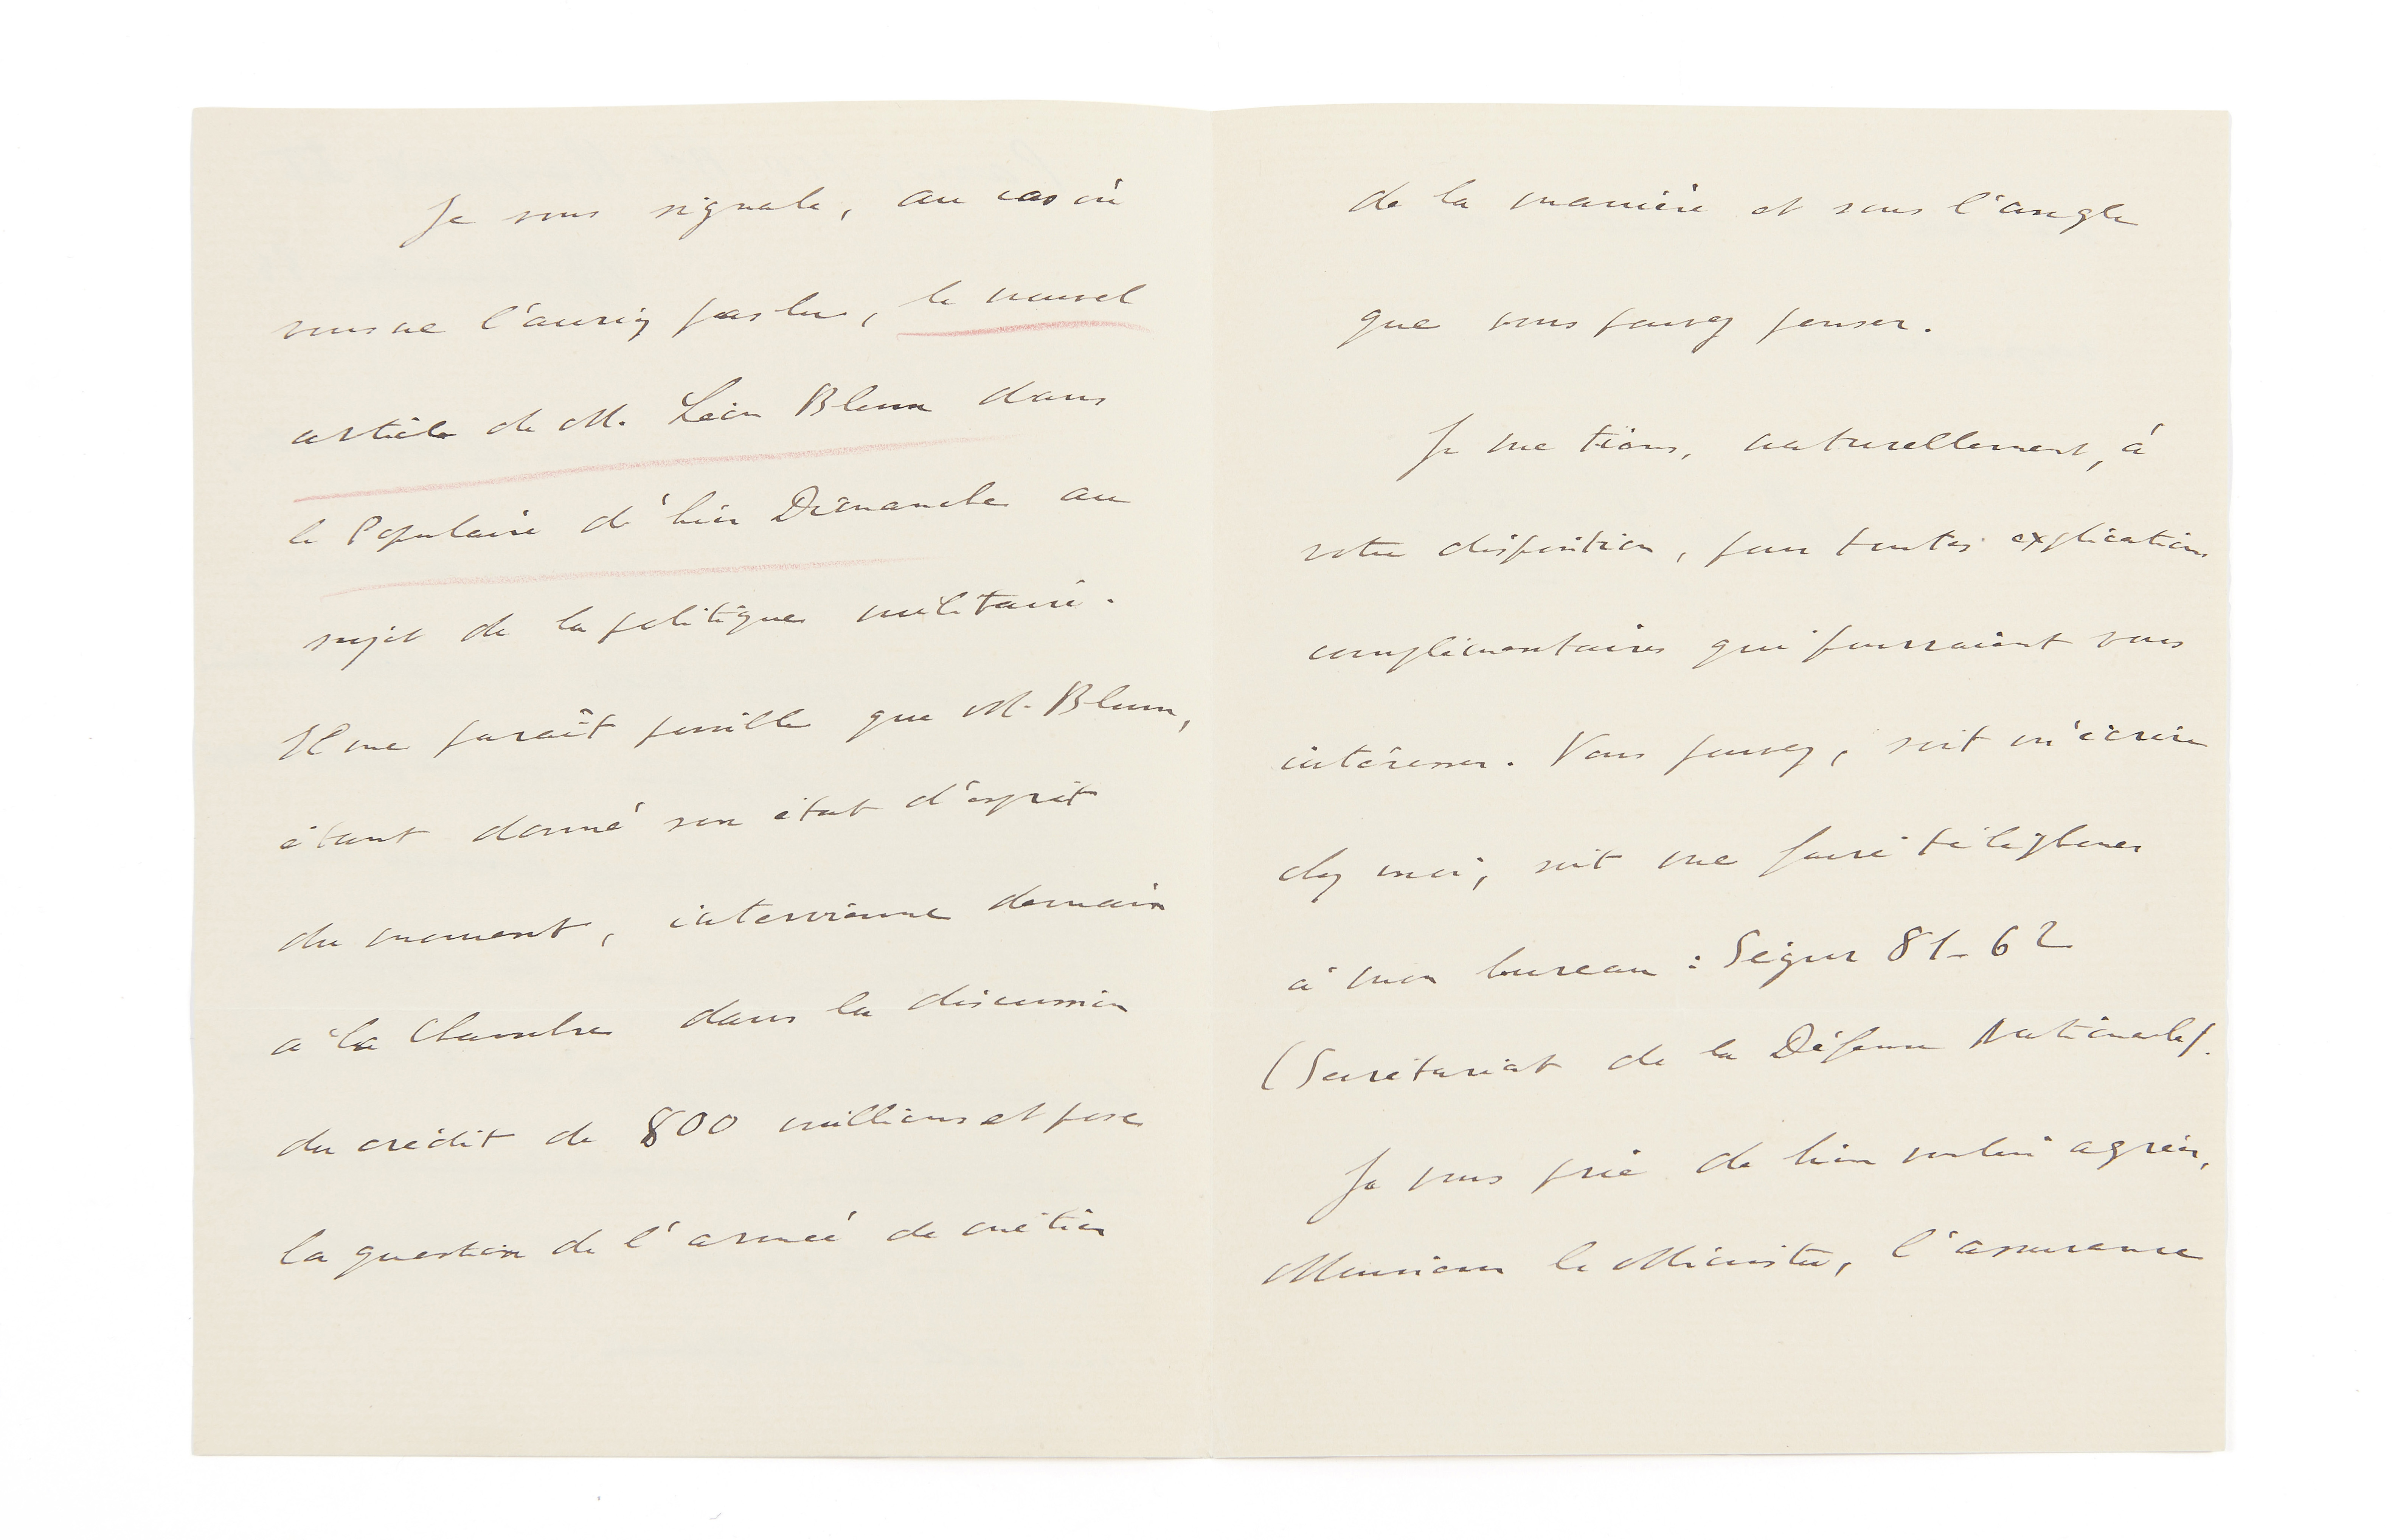 Je vous signale, au cas où
vous ne l'auriez pas lu, le nouvel
article de M. Léon Blum dans
le Populaire d'hier Dimanche au
sujet de la politique militaire.
Il me paraît possible que M. Blum,
étant donné son état d'esprit
du moment, intervienne demain
à la Chambre dans la discussion
du crédit de 800 millions et pose
la question de l'armée de métier
de la manière et sous l'angle
que vous pouvez penser.
Je me tiens, naturellement, à
votre disposition, pour toutes explications
complémentaires qui pourraient vous
intéresser. Vous pouvez, soit m'écrire
chez moi, soit me faire téléphoner
à mon bureau : Ségur 81-62
(Secrétariat de la Défense Nationale).
Je vous prie de bien vouloir agréer,
Monsieur le Ministre, l'assurance